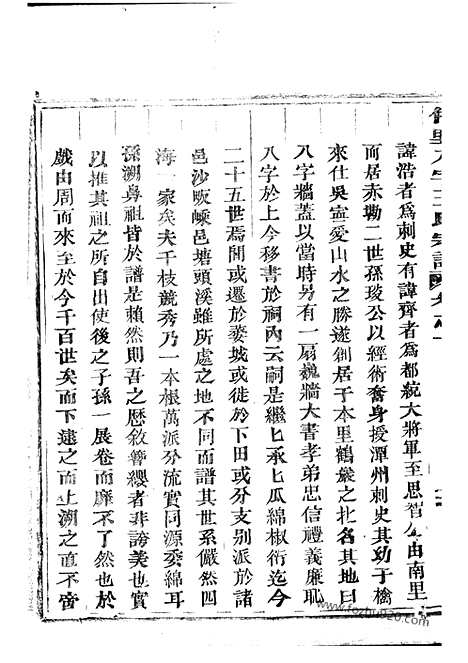 諱浩者爲刺史有諱齊者爲都統大將軍至思智公由南里
而居赤勘二世孫琰公以經術奮身授潭州刺史其幼子檎
來仕吳寧愛山水之勝遂創居于本里鶴巖之北名其地曰
八字牆蓋以當時另有一扇巍牆大書孝弟忠信禮義廉恥
八字於上今移書於祠內云嗣是繼匕承匕瓜綿椒衍迄今
二十五世焉間或遷於婺城或徙於下田或分支別派於諸
邑沙畈嵊邑塘頭溪雖所處之地不同而譜其世系儼然四
海一家矣夫千枝競秀乃一本根萬派分流實同源委綿耳
孫溯鼻祖皆於譜是賴然則吾之歷敘簪纓者非誇美也實
以推其祖之所自出使後之子孫一展卷而靡不了然也於
戲由周而來至於今千百世矣而下逮之而上溯之直不啻
王氏宗譜
www.fozhu920.com